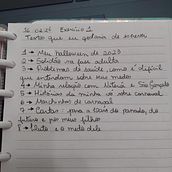 16.02.24 Exercício 1
Textos que eu gostaria de escrever
1 → Meu halloween de 2023
2 → Solidão na fase adulta
3 → Problemas de saúde, como é difícil
que entendam sobre seus medos
4 → Minha relação com Niterói e São Gonçalo
5 → Histórias da minha vó sobre carnaval
6 → Marchinhas de carnaval
7 → Cartas: para a do passado, do
futuro e pro meus filhos
8 → Luto e o medo dele